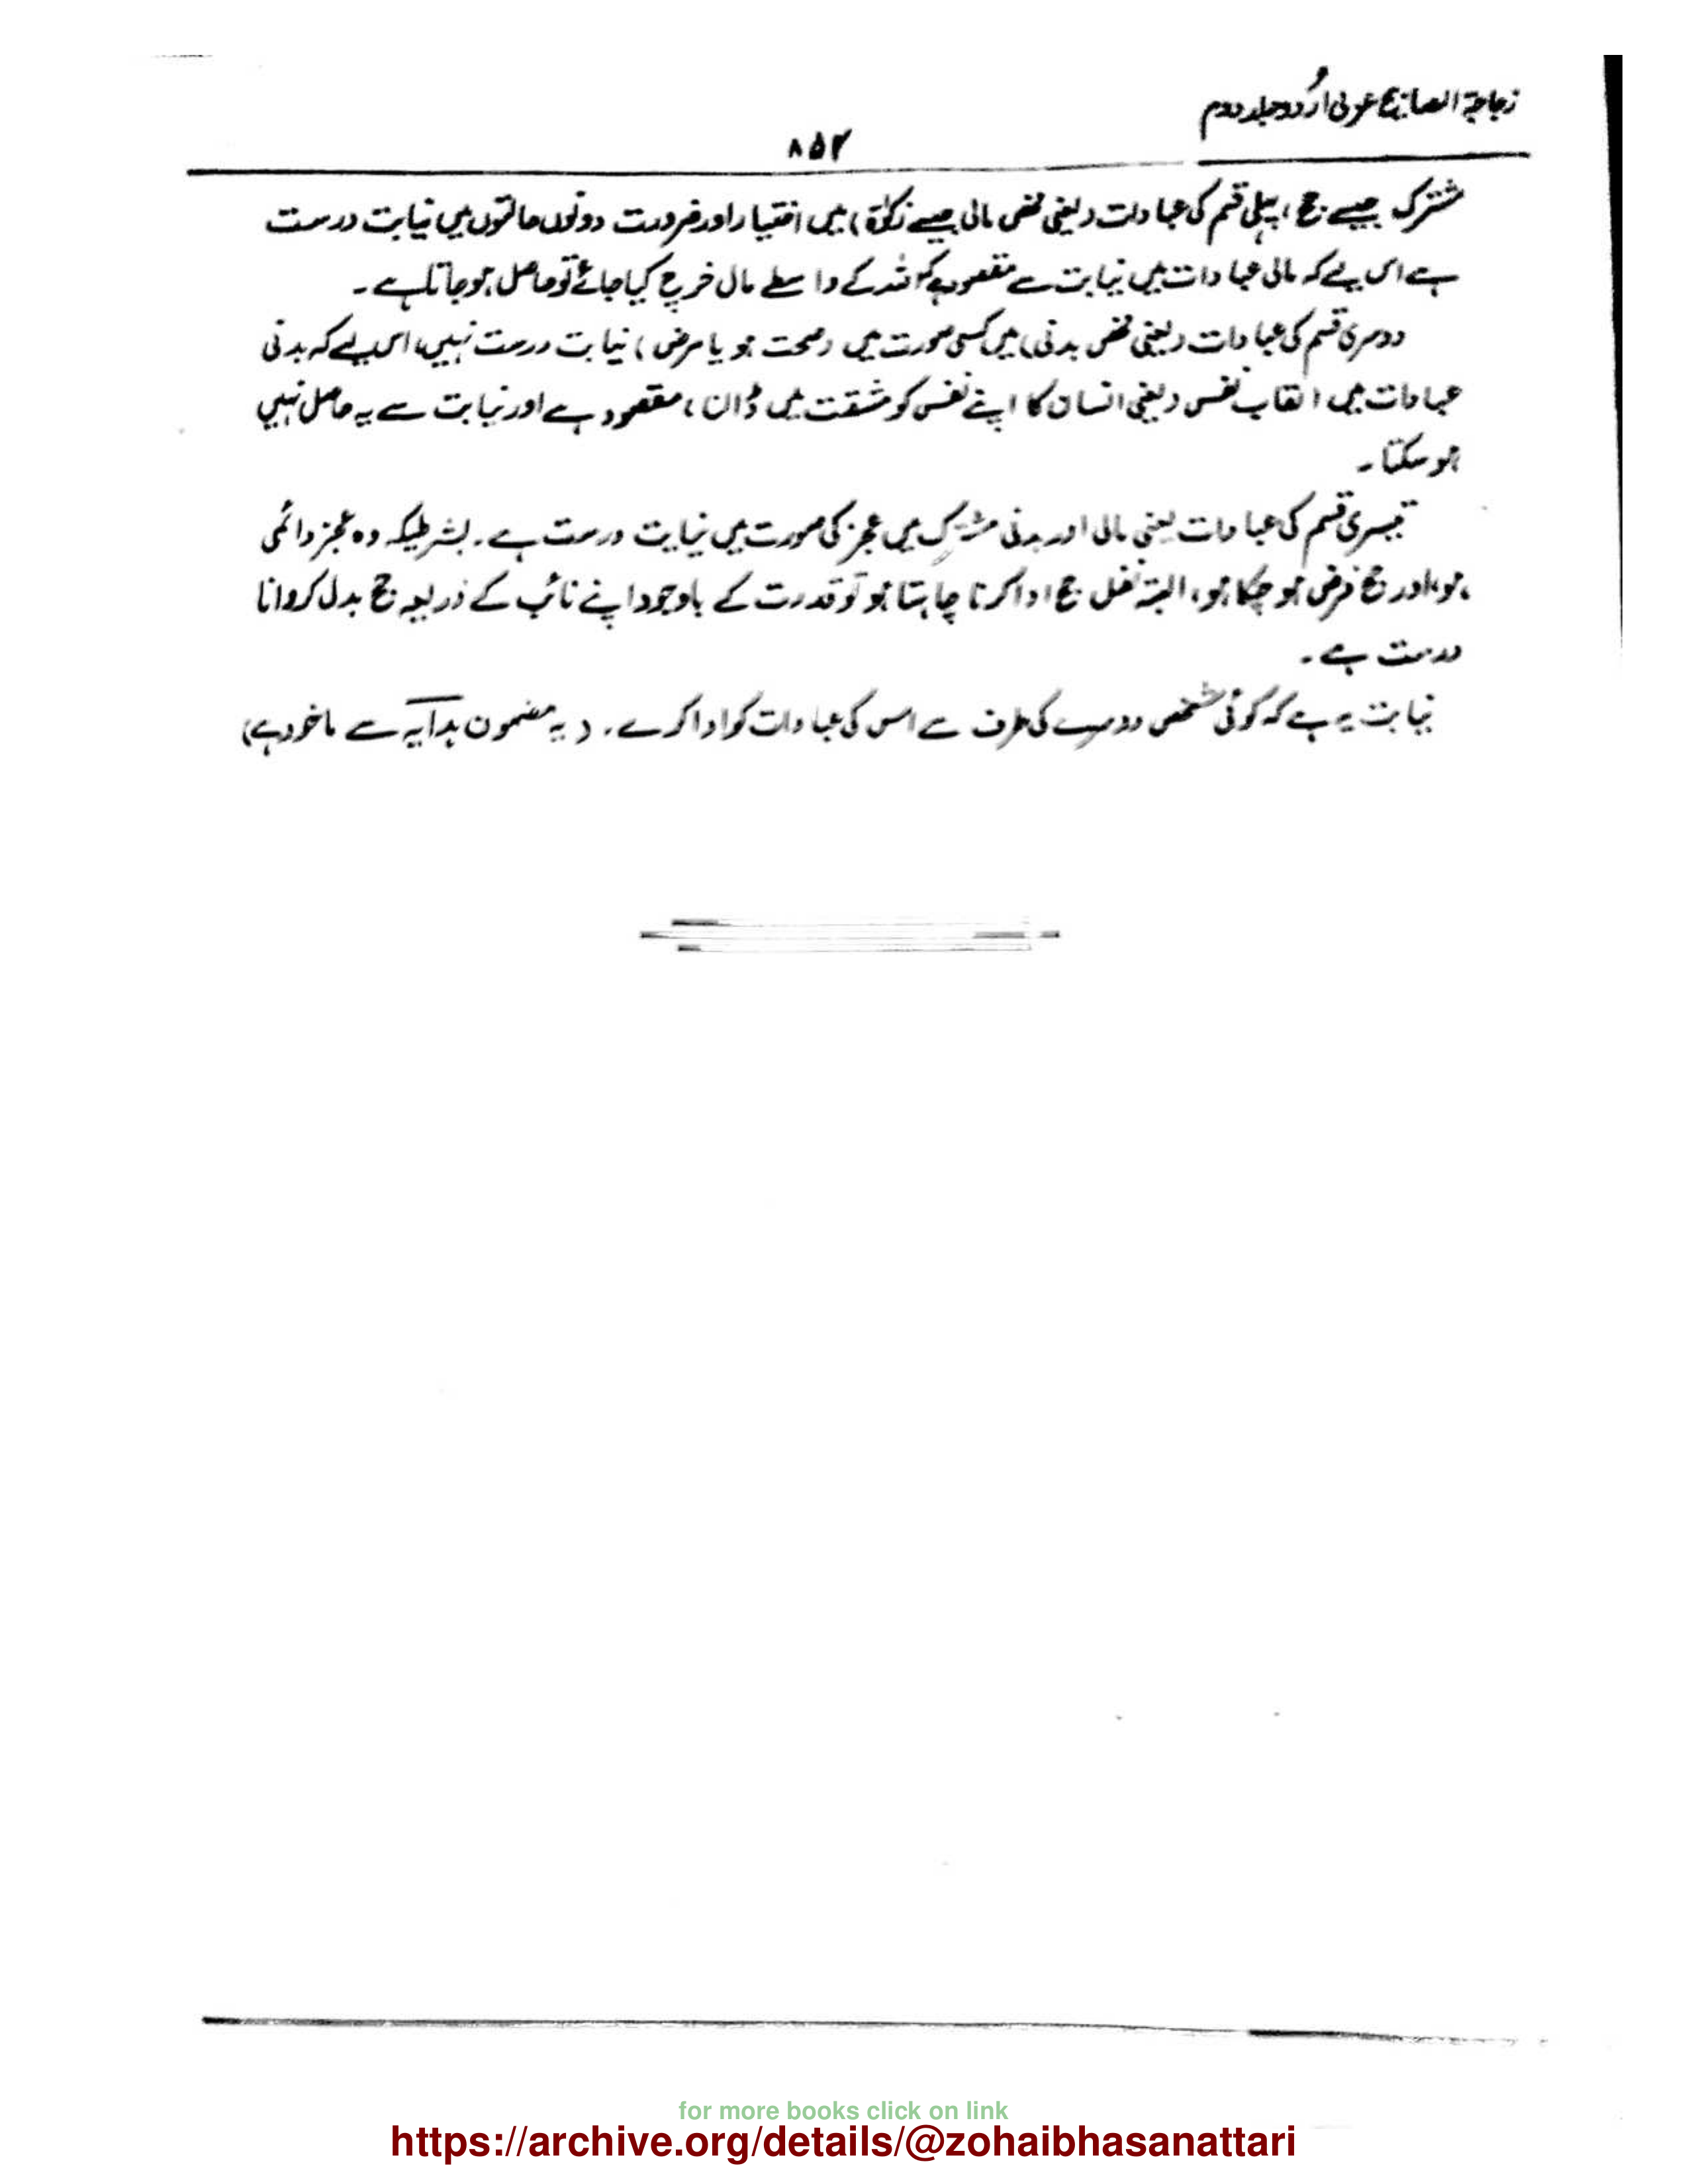 زجاجۃ المصابیح عربی اُردو جلد دوم
۸۵۲
مشترک جیسے حج، پہلی قسم کی عبادات (یعنی محض مالی جیسے زکوٰۃ) میں اختیار اور ضرورت دونوں حالتوں میں نیابت درست
ہے اس لیے کہ مالی عبادات میں نیابت سے مقصود ہے کہ اللہ کے واسطے مال خرچ کیا جائے تو حاصل ہو جاتا ہے۔
دوسری قسم کی عبادات (یعنی محض بدنی) میں کسی صورت میں (صحت ہو یا مرض) نیابت درست نہیں، اس لیے کہ بدنی
عبادات میں اتقاب نفس (یعنی انسان کا اپنے نفس کو مشقت میں ڈالن) مقصود ہے اور نیابت سے یہ حاصل نہیں
ہو سکتا۔
تیسری قسم کی عبادات یعنی مالی اور بدنی مشترک میں عجز کی صورت میں نیابت درست ہے۔ بشرطیکہ وہ عجز دائمی
ہو، اور حج فرض ہو چکا ہو، البتہ نفل حج ادا کرنا چاہتا ہو تو قدرت کے باوجود اپنے نائب کے ذریعہ حج بدل کروانا
درست ہے۔
نیابت یہ ہے کہ کوئی شخص دوسرے کی طرف سے اس کی عبادات کو ادا کرے۔ (یہ مضمون ہدایہ سے ماخوذ ہے)
for more books click on link
https://archive.org/details/@zohaibhasanattari